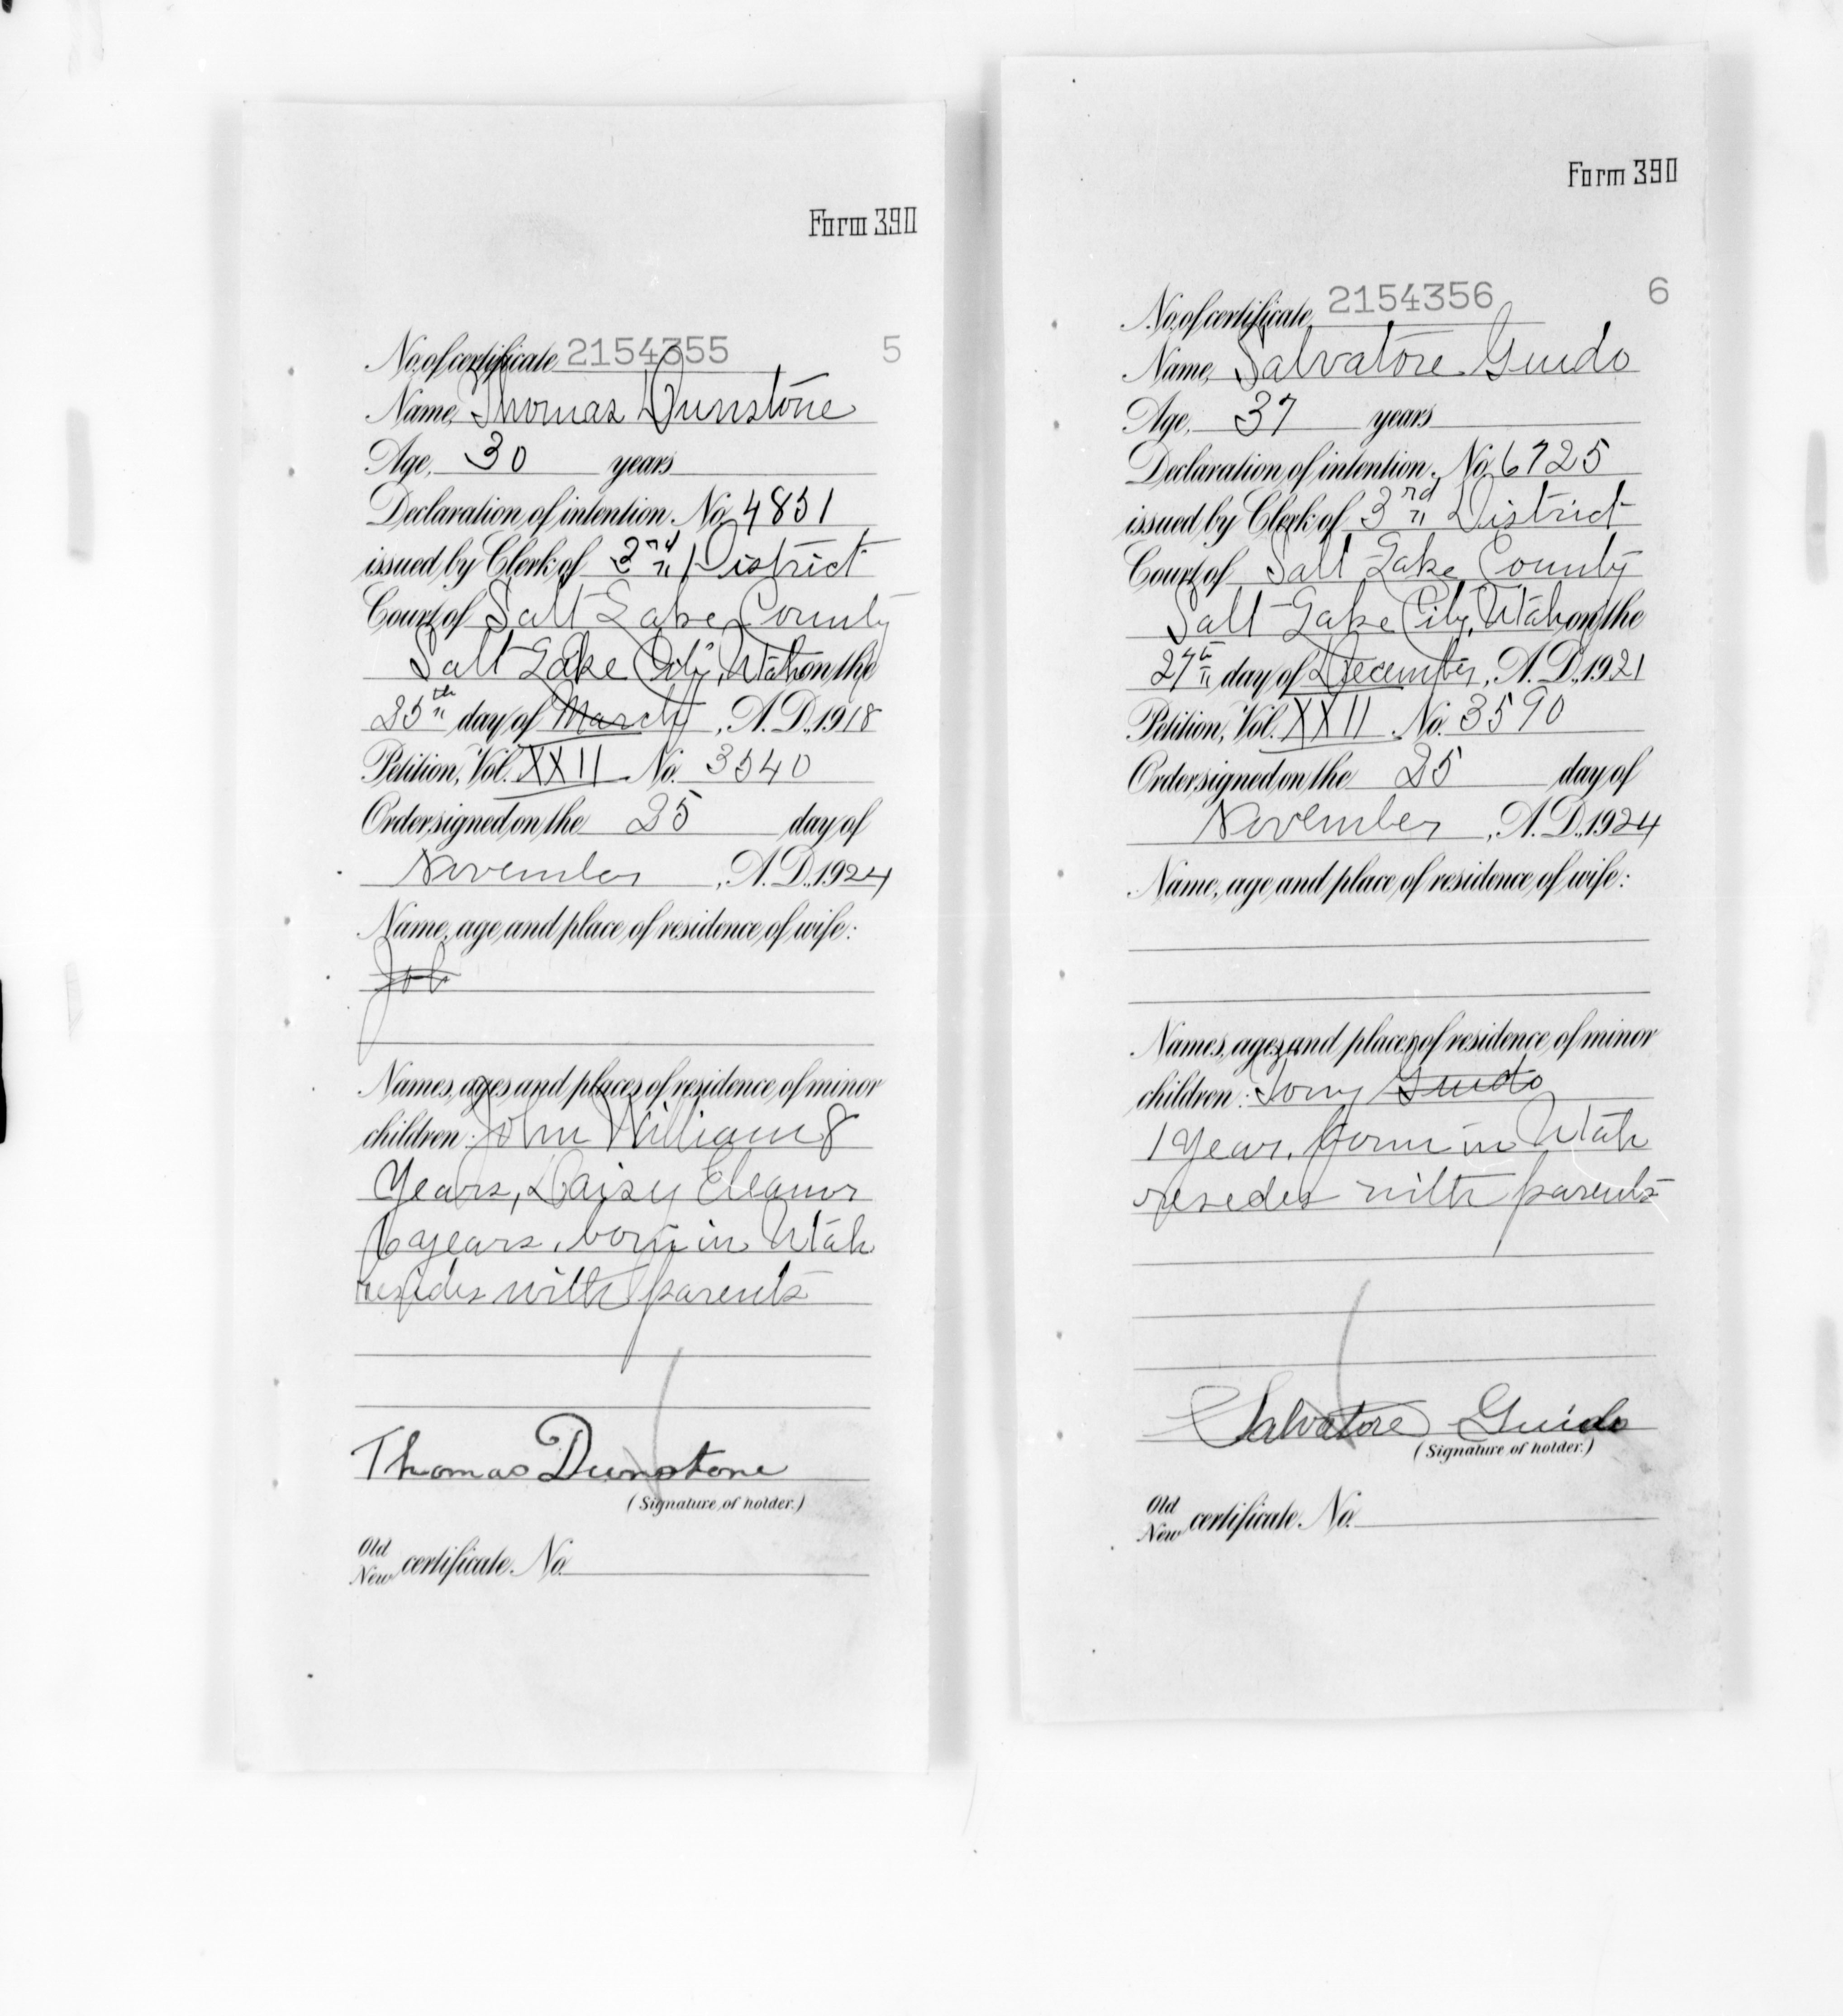 Form 390
No. of certificate 2154355 5
Name, Thomas Dunstone
Age, 30 years
Declaration of intention. No. 4851
issued by Clerk of 3rd District
Court of Salt Lake County
Salt Lake City, Utah on the
25th day of March, A. D., 1918
Petition, Vol. XXII No. 3540
Order signed on the 25 day of
November, A. D., 1924
Name, age and place of residence of wife:
Names, ages and places of residence of minor
children: John William 8
Years, Daisy Eleanor
6 years, born in Utah
resides with parents
Thomas Dunstone
(Signature of holder.)
Old
New certificate. No.
Form 390
No. of certificate 2154356 6
Name, Salvatore Guido
Age, 37 years
Declaration of intention. No. 6725
issued by Clerk of 3rd District
Court of Salt Lake County
Salt Lake City, Utah on the
27th day of December, A. D., 1921
Petition, Vol. XXII No. 3590
Order signed on the 25 day of
November, A. D., 1924
Name, age and place of residence of wife:
Names, ages and places of residence of minor
children: Tony Guido
1 year, born in Utah
resides with parents
Salvatore Guido
(Signature of holder.)
Old
New certificate. No.